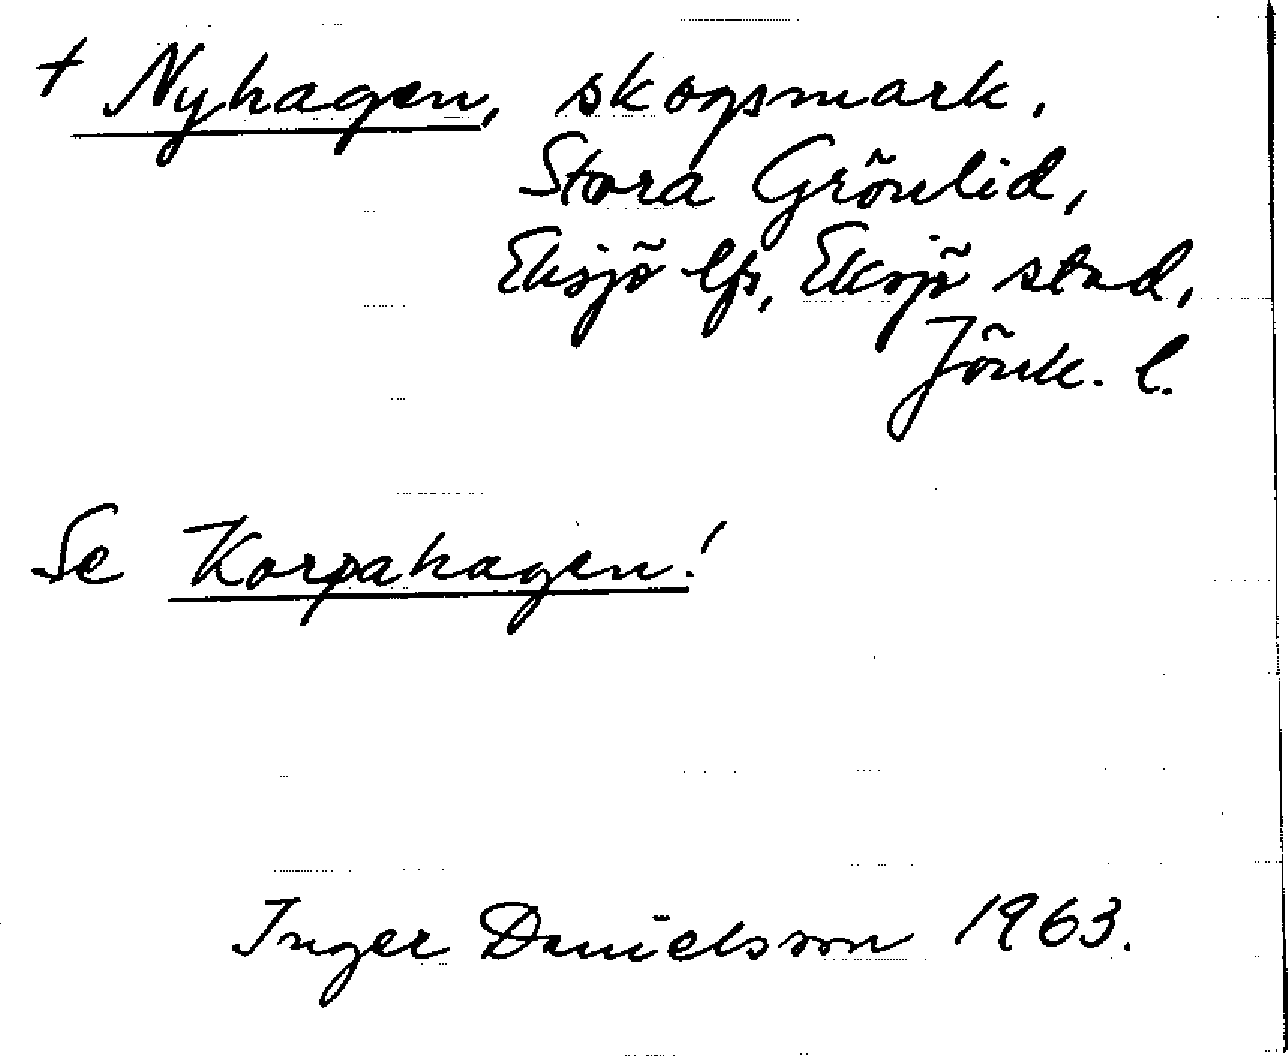 † Nyhagen, skogsmark.
Stora Grönlid,
Eksjö lfs, Eksjö stad,
Jönk. l.
Se Korpahagen!
Inger Danielsson 1963.